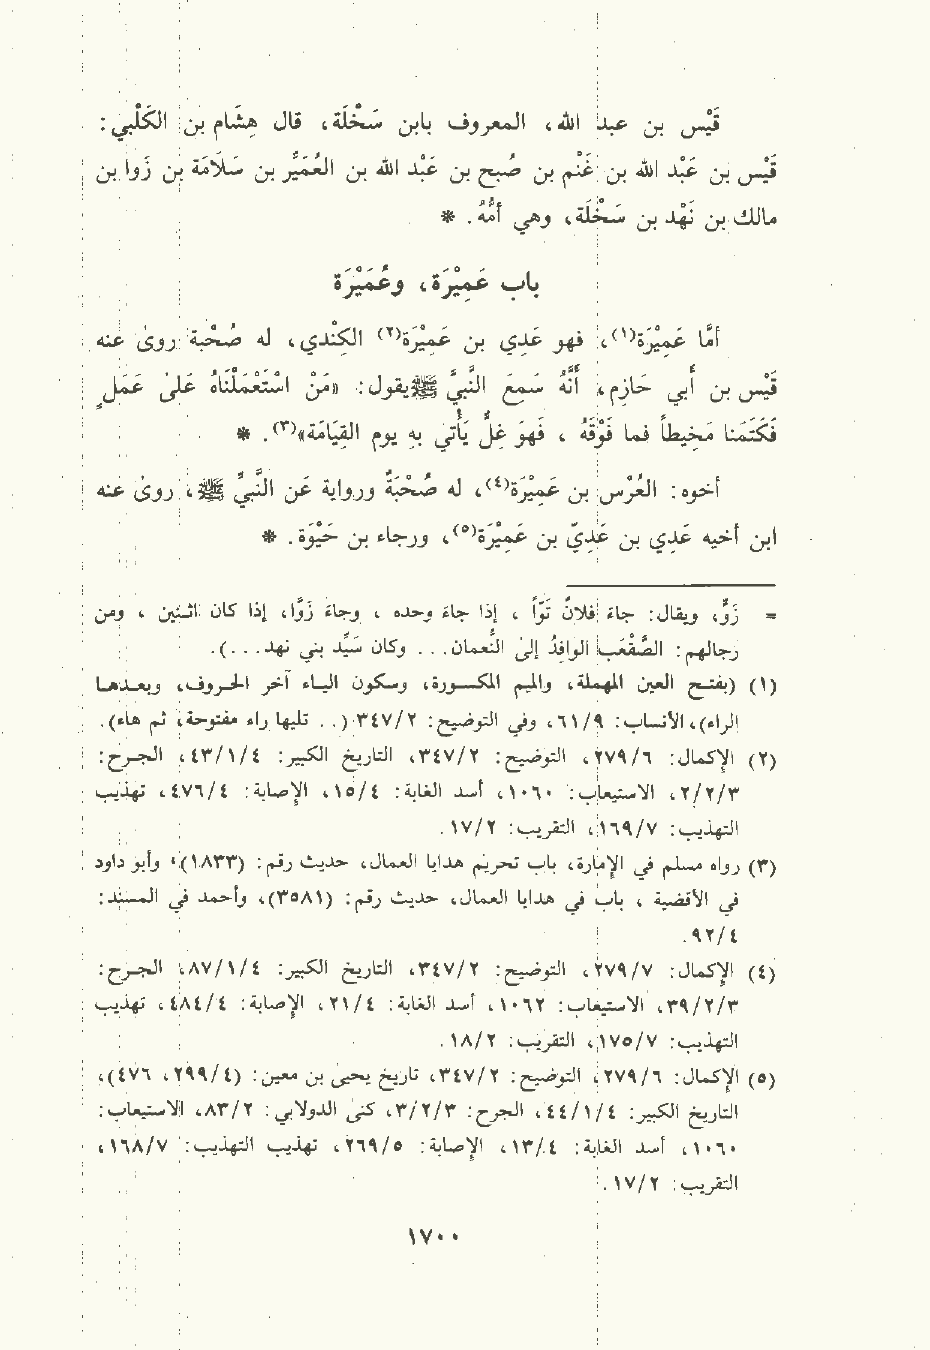 قَيْس بن عبد الله، المعروف بابن سَخْلَة، قال هِشَام بن الكَلْبي:
قَيْس بن عَبْد الله بن غَنْم بن صُبح بن عَبْد الله بن العُمَرِّيْر بن سَلاَمَة بن زَوا بن
مالك بن نَهْد بن سَخْلَة، وهي أُمُّهُ. *
باب عَمِيْرَة، وعُمَيْرَة
أمَّا عَمِيْرَة(١)، فهو عَدِي بن عَمِيْرَة(٢) الكِنْدي، له صُحْبة روىٰ عنه
قَيْس بن أَبي حَازِم، أَنَّهُ سَمِعَ النَّبيَّ ﷺ يقول: «مَنْ اسْتَعْمَلْنَاهُ عَلىٰ عَمَلٍ
فَكَتَمَنا مَخِيطاً فما فَوْقَهُ ، فَهوَ غلُّ يَأْتي بهِ يوم القِيَامَة»(٣). *
أخوه: العُرْس بن عَمِيْرَة(٤)، له صُحْبَةٌ ورواية عَن النَّبيِّ ﷺ، روىٰ عنه
ابن أخيه عَدِي بن عَدِيّ بن عَمِيْرَة(٥)، ورجاء بن حَيْوَة. *
= زَوٌّ، ويقال: جاءَ فلانٌ تَوّاً ، إذا جاءَ وحده ، وجاءَ زَوّاً، إذا كان اثـنين ، ومن
رجالهم: الصَّقْعَب الوافِدُ إلىٰ النُّعمان... وكان سَيِّد بني نهد...).
(١) (بفتح العين المهملة، والميم المكسورة، وسكون اليـاء آخر الحـروف، وبعـدهـا
الراء)،الأنساب: ٦١/٩، وفي التوضيح: ٣٤٧/٢ (.. تليها راء مفتوحة، ثم هاء).
(٢) الإكمال: ٢٧٩/٦، التوضيح: ٣٤٧/٢، التاريخ الكبير: ٤٣/١/٤، الجـرح:
٢/٢/٣، الاستيعاب: ١٠٦٠، أسد الغابة: ١٥/٤، الإصابة: ٤٧٦/٤، تهذيب
التهذيب: ١٦٩/٧، التقريب: ١٧/٢.
(٣) رواه مسلم في الإمارة، باب تحريم هدايا العمال، حديث رقم: (١٨٣٣)، وأبو داود
في الأقضية ، باب في هدايا العمال، حديث رقم: (٣٥٨١)، وأحمد في المسند:
٩٢/٤.
(٤) الإكمال: ٢٧٩/٧، التوضيح: ٣٤٧/٢، التاريخ الكبير: ٨٧/١/٤، الجـرح:
٣٩/٢/٣، الاستيعاب: ١٠٦٢، أسد الغابة: ٢١/٤، الإصابة: ٤٨٤/٤، تهذيب
التهذيب: ١٧٥/٧، التقريب: ١٨/٢.
(٥) الإكمال: ٢٧٩/٦، التوضيح: ٣٤٧/٢، تاريخ يحيىٰ بن معين: (٢٩٩/٤، ٤٧٦)،
التاريخ الكبير: ٤٤/١/٤، الجرح: ٣/٢/٣، كنىٰ الدولابي: ٨٣/٢، الاستيعاب:
١٠٦٠، أسد الغابة: ١٣/٤، الإصابة: ٢٦٩/٥، تهذيب التهذيب: ١٦٨/٧،
التقريب: ١٧/٢.
١٧٠٠